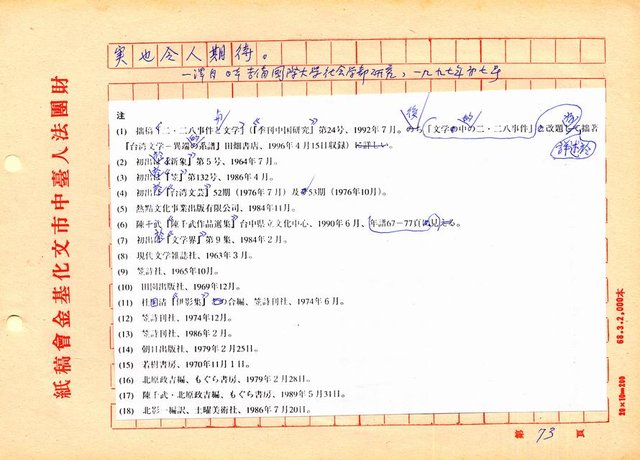 実也令人期待。
注
(1) 拙稿「二・二八事件と文学」(『季刊中国研究』第24号、1992年7月。のち「文学の中の二・二八事件」と改題して拙著
『台湾文学－異端の系譜』田畑書店、1996年4月15日収録)に詳しい。
(2) 初出は『新象』第5号、1964年7月。
(3) 初出は『笠』第132号、1986年4月。
(4) 初出は『台湾文芸』52期(1976年7月)及び53期(1976年10月)。
(5) 熱點文化事業出版有限公司、1984年11月。
(6) 陳千武『陳千武作品選集』台中県立文化中心、1990年6月、年譜67－77頁に見える。
(7) 初出は『文学界』第9集、1984年2月。
(8) 現代文学雑誌社、1963年3月。
(9) 笠詩社、1965年10月。
(10) 田園出版社、1969年12月。
(11) 杜国清『伊影集』との合編、笠詩刊社、1974年6月。
(12) 笠詩刊社、1974年12月。
(13) 笠詩刊社、1986年2月。
(14) 朝日出版社、1979年2月25日。
(15) 若樹書房、1970年11月1日。
(16) 北原政吉編、もぐら書房、1979年2月28日。
(17) 陳千武・北原政吉編、もぐら書房、1989年5月31日。
(18) 北影一編訳、土曜美術社、1986年7月20日。
財團法人臺中市文化基金會稿紙
68.3.2,000本
20×10=200
第 73 頁